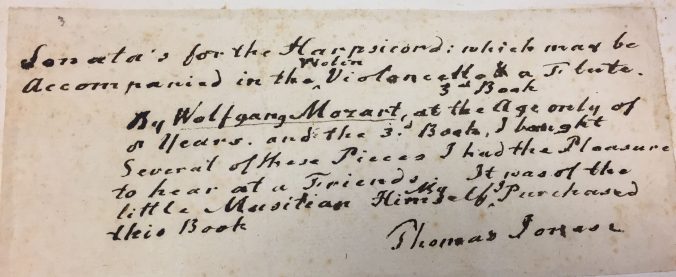 Sonata's for the Harpsicord: which may be
Wolin
Accompanied in the ^ Violoncello & a Flute.
3d Book
By Wolfgang Mozart, at the Age only of
8 Years. and the 3.d Book, I bought
Several of these Pieces I had the Pleasure
to hear at a Friends. It was of the
little Musitian Himself, I Purchased
this Book
Thomas